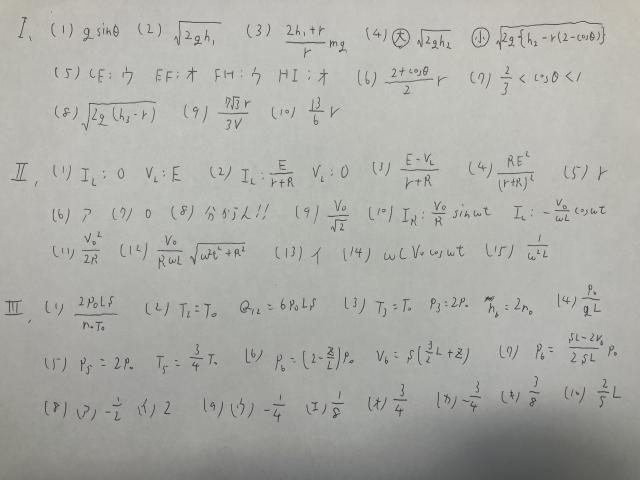 I、 (1) g sinθ (2) √2gh₁ (3) (2h₁+r)/r mg (4) 大 √2gh₂ 小 √2g{h₂-r(2-cosθ)}
(5) CE:ウ EF:オ FH:ウ HI:オ (6) (2+cosθ)/2 r (7) 2/3 < cosθ < 1
(8) √2g(h₃-r) (9) 7√3r/3V (10) 13/6 r
II、 (1) I_L:0 V_L:E (2) I_L: E/(r+R) V_L:0 (3) (E-V_L)/(r+R) (4) RE²/(r+R)² (5) r
(6) ア (7) 0 (8) 分からん!! (9) V₀/√2 (10) I_R: V₀/R sinωt I_L: -V₀/ωL cosωt
(11) V₀²/2R (12) V₀/RωL √ω²L²+R² (13) イ (14) ωCV₀cosωt (15) 1/ω²L
III、 (1) 2P₀LS/n₀T₀ (2) T₂=T₀ Q₁₂=6P₀LS (3) T₃=T₀ P₃=2P₀ n_b=2n₀ (4) P₀/gL
(5) P₅=2P₀ T₅=3/4 T₀ (6) P₆=(2-z/L)P₀ V₆=S(3/2 L+z) (7) P₆= (5L-2V₆)/2SL P₀
(8) (ア) -1/2 (イ) 2 (9) (ウ) -1/4 (エ) 1/8 (オ) 3/4 (カ) -3/4 (キ) 3/8 (10) 2/5 L